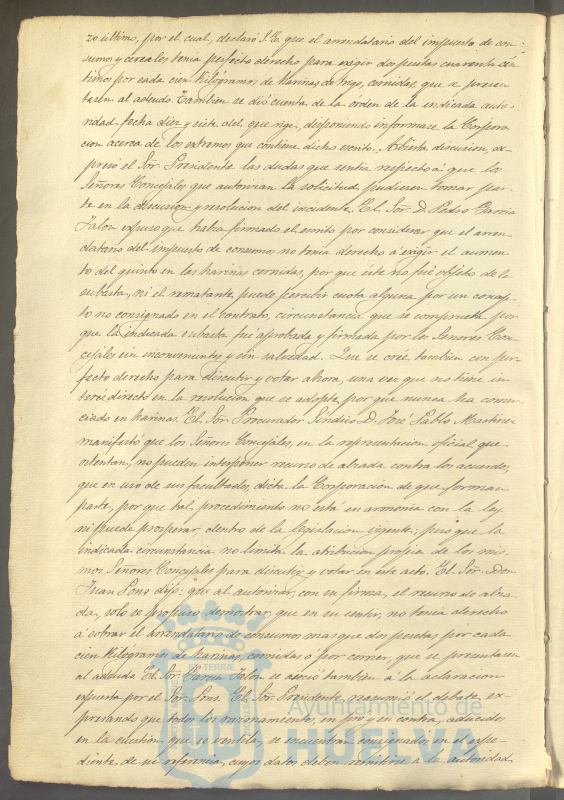 zo último, por el cual, declaró S. E. que el arrendatario del impuesto de con-
sumo y cereales tenia perfecto derecho para exigir dos pesetas cuarenta cén-
timos por cada cien Kilógramos de Harinas de trigo, cernidas, que se presen-
tasen al adeudo. Tambien se dió cuenta de la orden de la indicada auto-
ridad fecha diez y siete del que rige, disponiendo informase la Corpora-
cion acerca de los extremos que contiene dicho escrito. Abierta discusion, ex-
presó el Sor. Presidente las dudas que sentia respecto á que los
Señores Concejales que autorizan la solicitud pudiesen tomar par-
te en la discusion y resolucion del incidente. El Sor. D. Pedro Garcia
Jalon expuso que habia firmado el escrito por considerar que el arren-
datario del impuesto de consumos no tenia derecho á exigir el aumen-
to del quinto en las harinas cernidas, por que este no fué objeto de la
subasta, ni el rematante puede percibir cuota alguna por un concep-
to no consignado en el contrato, circunstancia que se comprueba por-
que la indicada subasta fué aprobada y firmada por los Señores Con-
cejales sin inconveniente y sin salvedad. Que se cree tambien con per-
fecto derecho para discutir y votar ahora, una vez que no tiene in-
terés directo en la resolucion que se adopte, por que nunca ha comer-
ciado en harinas. El Sor. Procurador Síndico D. José Pablo Martinez
manifestó que los Señores Concejales, en la representacion oficial que
ostentan, no pueden interponer recurso de alzada contra los acuerdos,
que en uso de sus facultades, dicta la Corporacion de que forman
parte, por que tal procedimiento no está en armonía con la ley
ni puede prosperar, dentro de la legislacion vigente; pero que la
indicada circunstancia no limita la atribucion propia de los mis-
mos Señores Concejales para discutir y votar en este acto. El Sor. Don
Juan Pons dijo: que al autorizar, con su firma, el recurso de alza-
da, solo se propuso demostrar que en su sentir, no tenia derecho
á cobrar el arrendatario de consumos mas que dos pesetas por cada
cien Kilógramos de Harinas, cernidas ó por cerner, que se presentasen
al adeudo. El Sor. Garcia Jalon se asoció tambien á la aclaracion
expuesta por el Sor. Pons. El Sor. Presidente, reasumió el debate, ex-
presando que todos los razonamientos, en pro y en contra, aducidos
en la cuestion que se ventila, se encuentran consignados en el expe-
diente de su referencia, cuyos datos deben remitirse á la autoridad
Ayuntamiento de
HUELVA